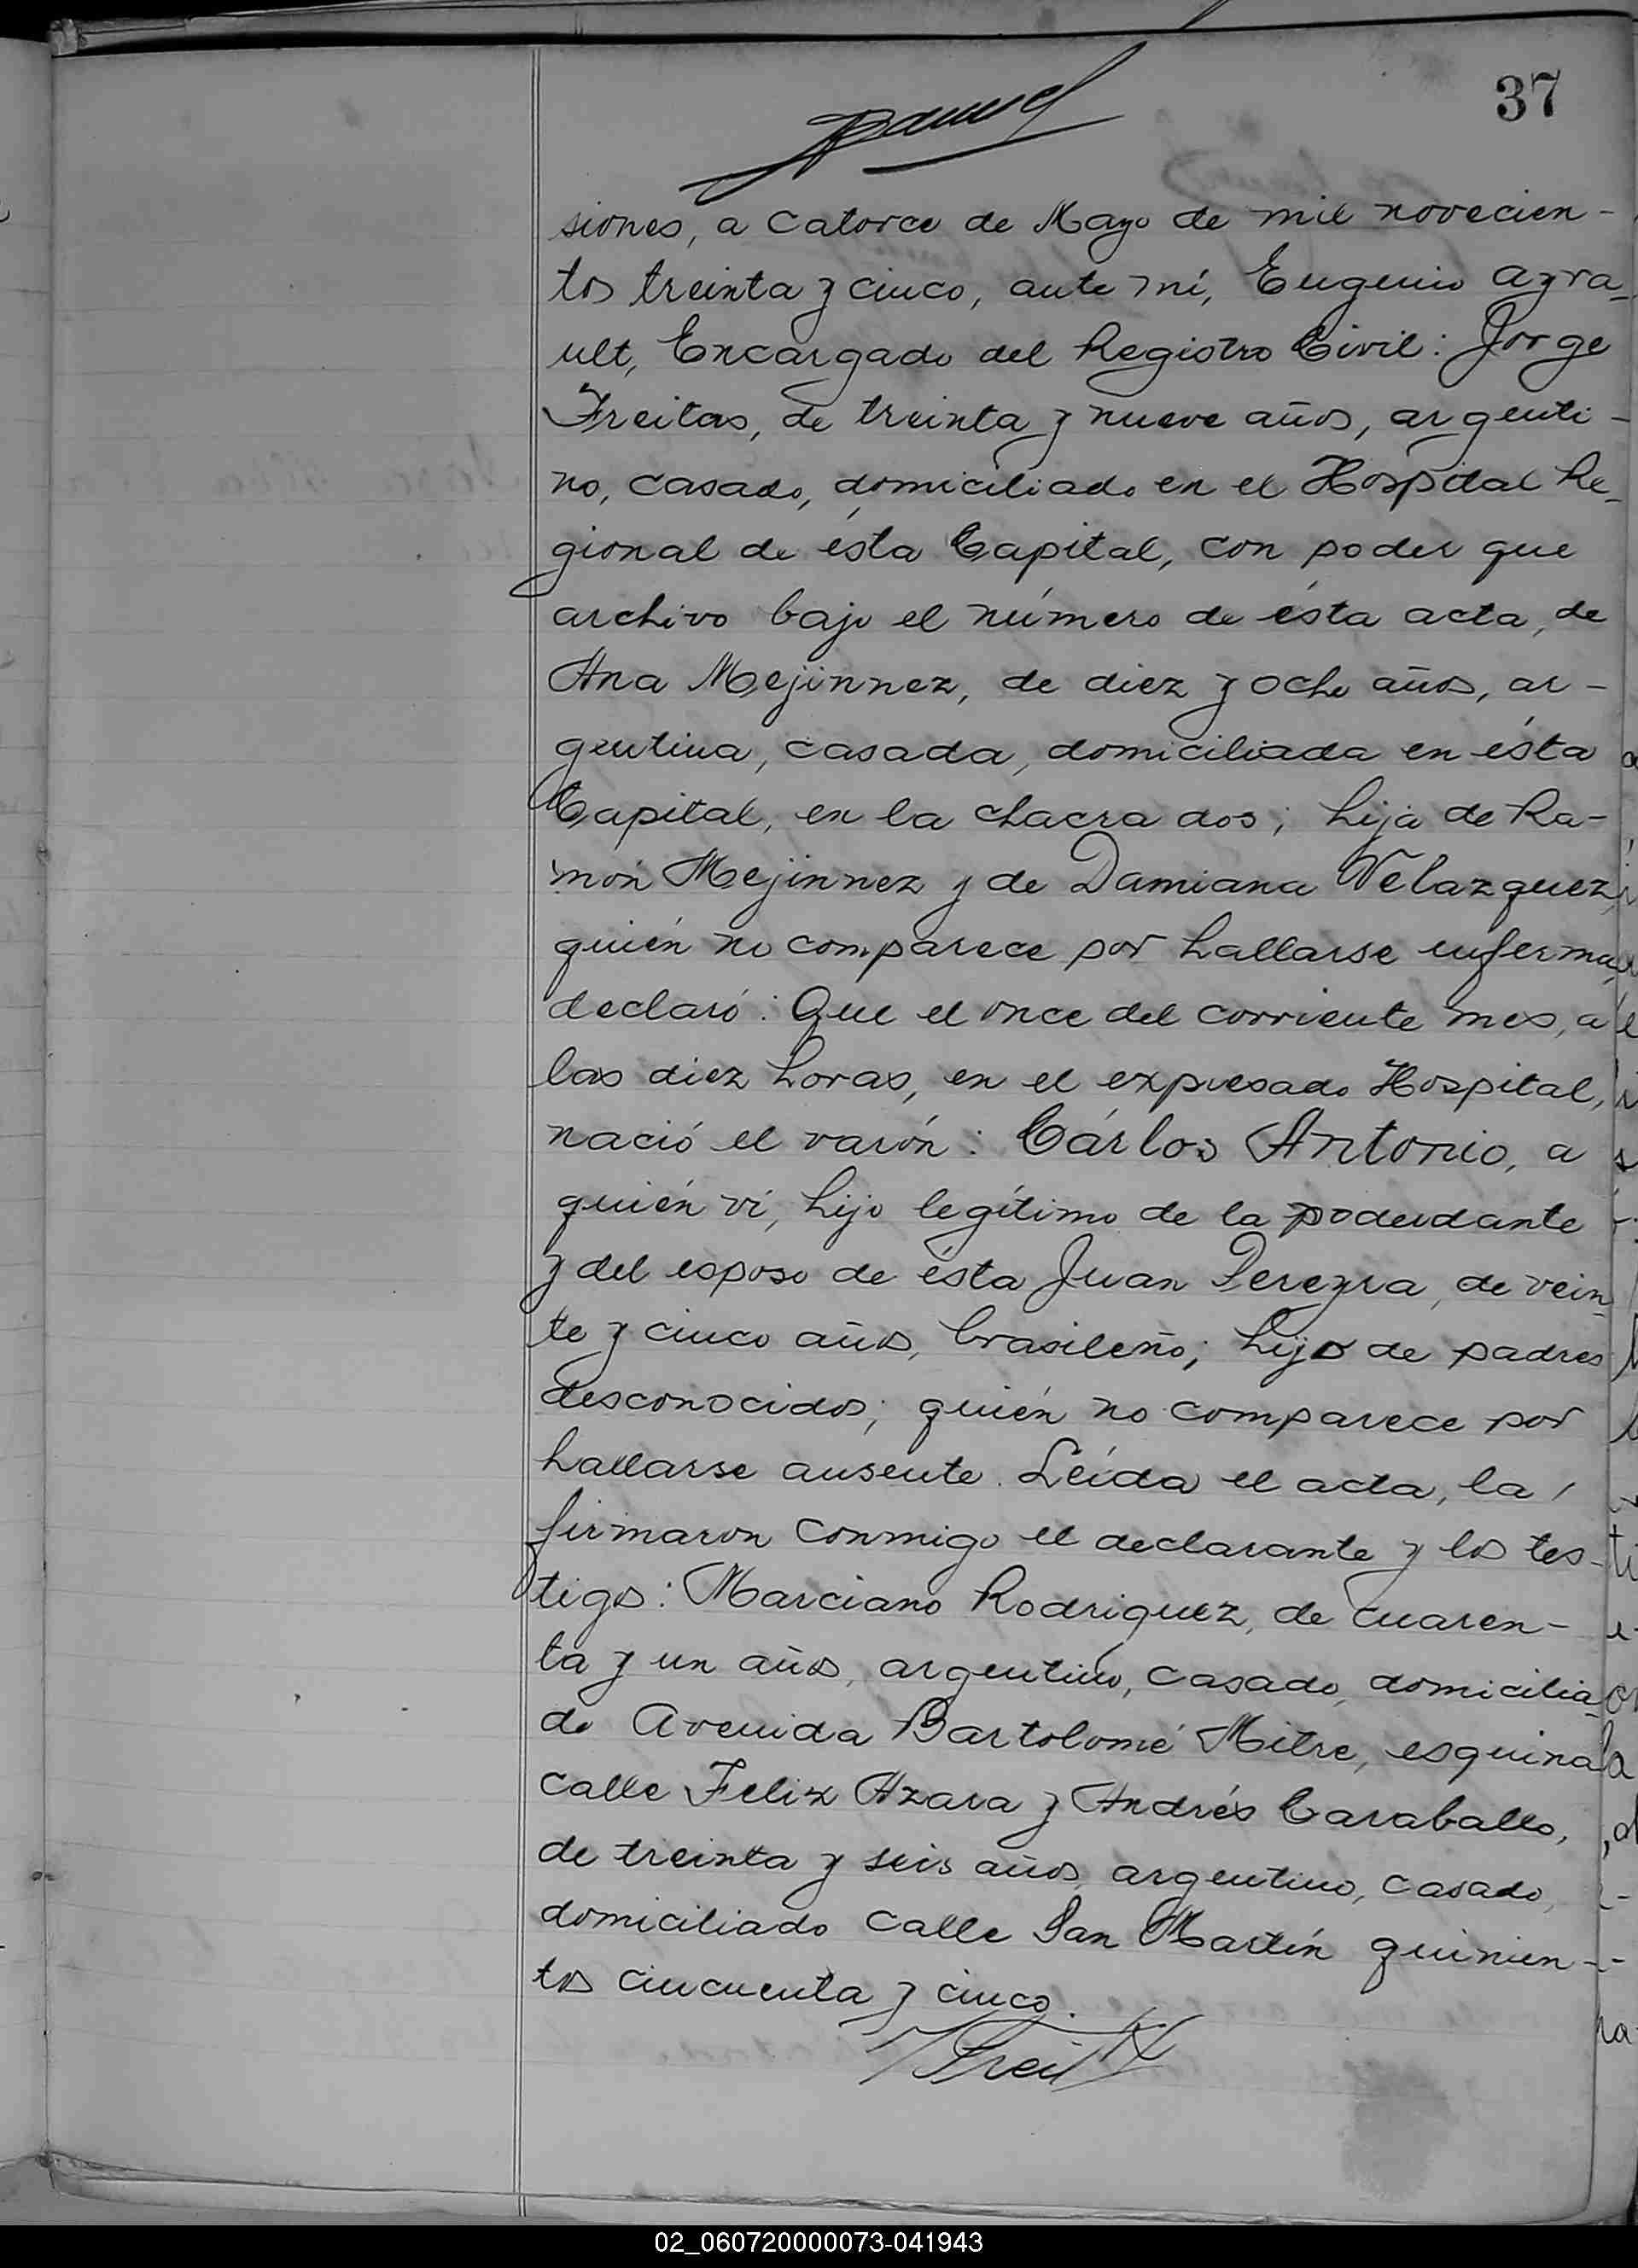 37
siones, a catorce de Mayo de mil novecien-
tos treinta y cinco, ante mí, Eugenio Ayra-
ult, Encargado del Registro Civil: Jorge
Freitas, de treinta y nueve años, argenti-
no, casado, domiciliado en el Hospital Re-
gional de ésta Capital, con poder que
archivo bajo el número de ésta acta, de
Ana Mejinnez, de diez y ocho años, ar-
gentina, casada, domiciliada en ésta
Capital, en la chacra dos; hija de Ra-
món Mejinnez y de Damiana Velazquez,
quién no comparece por hallarse enferma,
declaró: Que el once del corriente mes, a
las diez horas, en el expresado Hospital,
nació el varón: Cárlos Antonio, a
quién ví, hijo legítimo de la poderdante
y del esposo de ésta Juan Pereyra, de vein-
te y cinco años, brasileño; hijo de padres
desconocidos; quién no comparece por
hallarse ausente. Leída el acta, la
firmaron conmigo el declarante y los tes-
tigos: Marciano Rodriguez, de cuaren-
ta y un años, argentino, casado, domicilia-
do Avenida Bartolomé Mitre, esquina
calle Felix Azara y Andrés Caraballo,
de treinta y seis años, argentino, casado,
domiciliado calle San Martín quinien-
tos cincuenta y cinco.
02_060720000073-041943